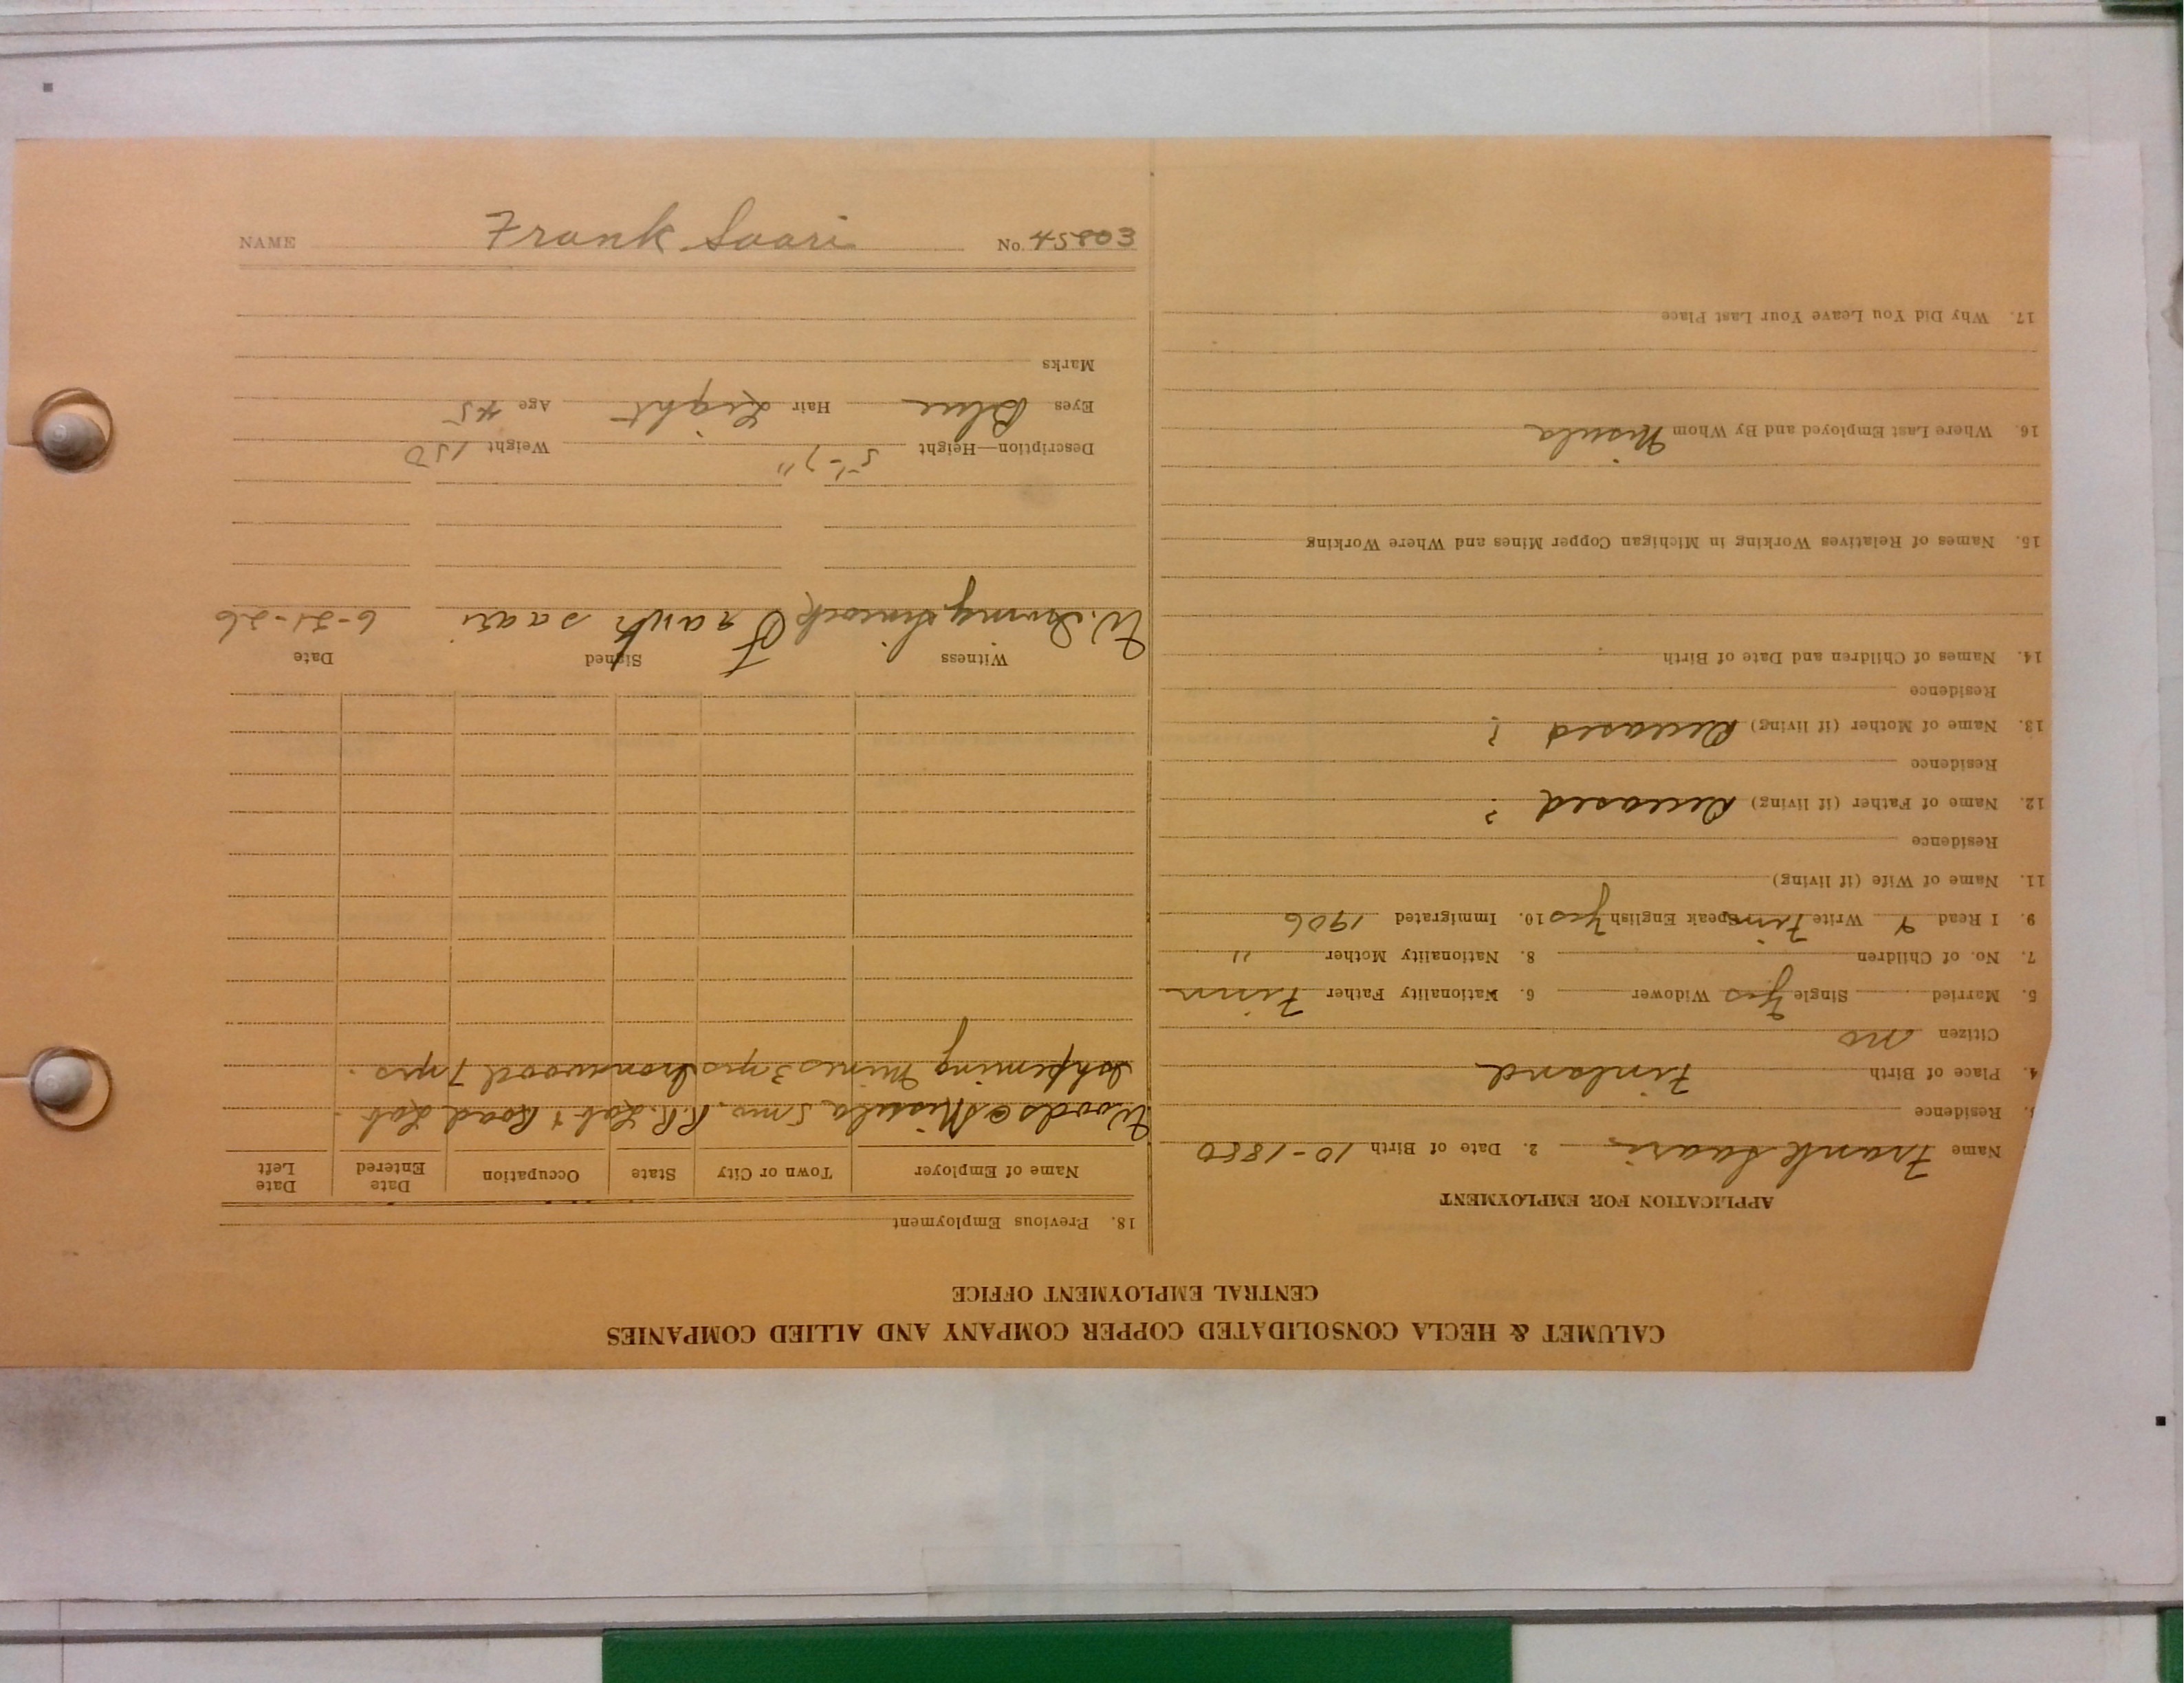 CALUMET & HECLA CONSOLIDATED COPPER COMPANY AND ALLIED COMPANIES
CENTRAL EMPLOYMENT OFFICE
APPLICATION FOR EMPLOYMENT
Name Frank Saari 2. Date of Birth 10-1880
Residence
4. Place of Birth Finland
Citizen no
5. Married Single Yes Widower 6. Nationality Father Finn
7. No. of Children 8. Nationality Mother "
9. I Read & Write Finn Speak English Yes 10. Immigrated 1906
11. Name of Wife (if living)
Residence
12. Name of Father (if living) Deceased ?
Residence
13. Name of Mother (if living) Deceased ?
Residence
14. Names of Children and Date of Birth
15. Names of Relatives Working in Michigan Copper Mines and Where Working
16. Where Last Employed and By Whom Nisula
17. Why Did You Leave Your Last Place
18. Previous Employment
Name of Employer Town or City State Occupation Date Entered Date Left
Woods @ Nisula 5 mo. R.R. Lab & Road Lab.
Ishpeming Mines 3 yrs Ironwood 7 yrs.
Witness Signed Date
W. Frank Saari 6-21-26
Description—Height 5'-7" Weight 150
Eyes Blue Hair Light Age 45
Marks
NAME Frank Saari No. 45803